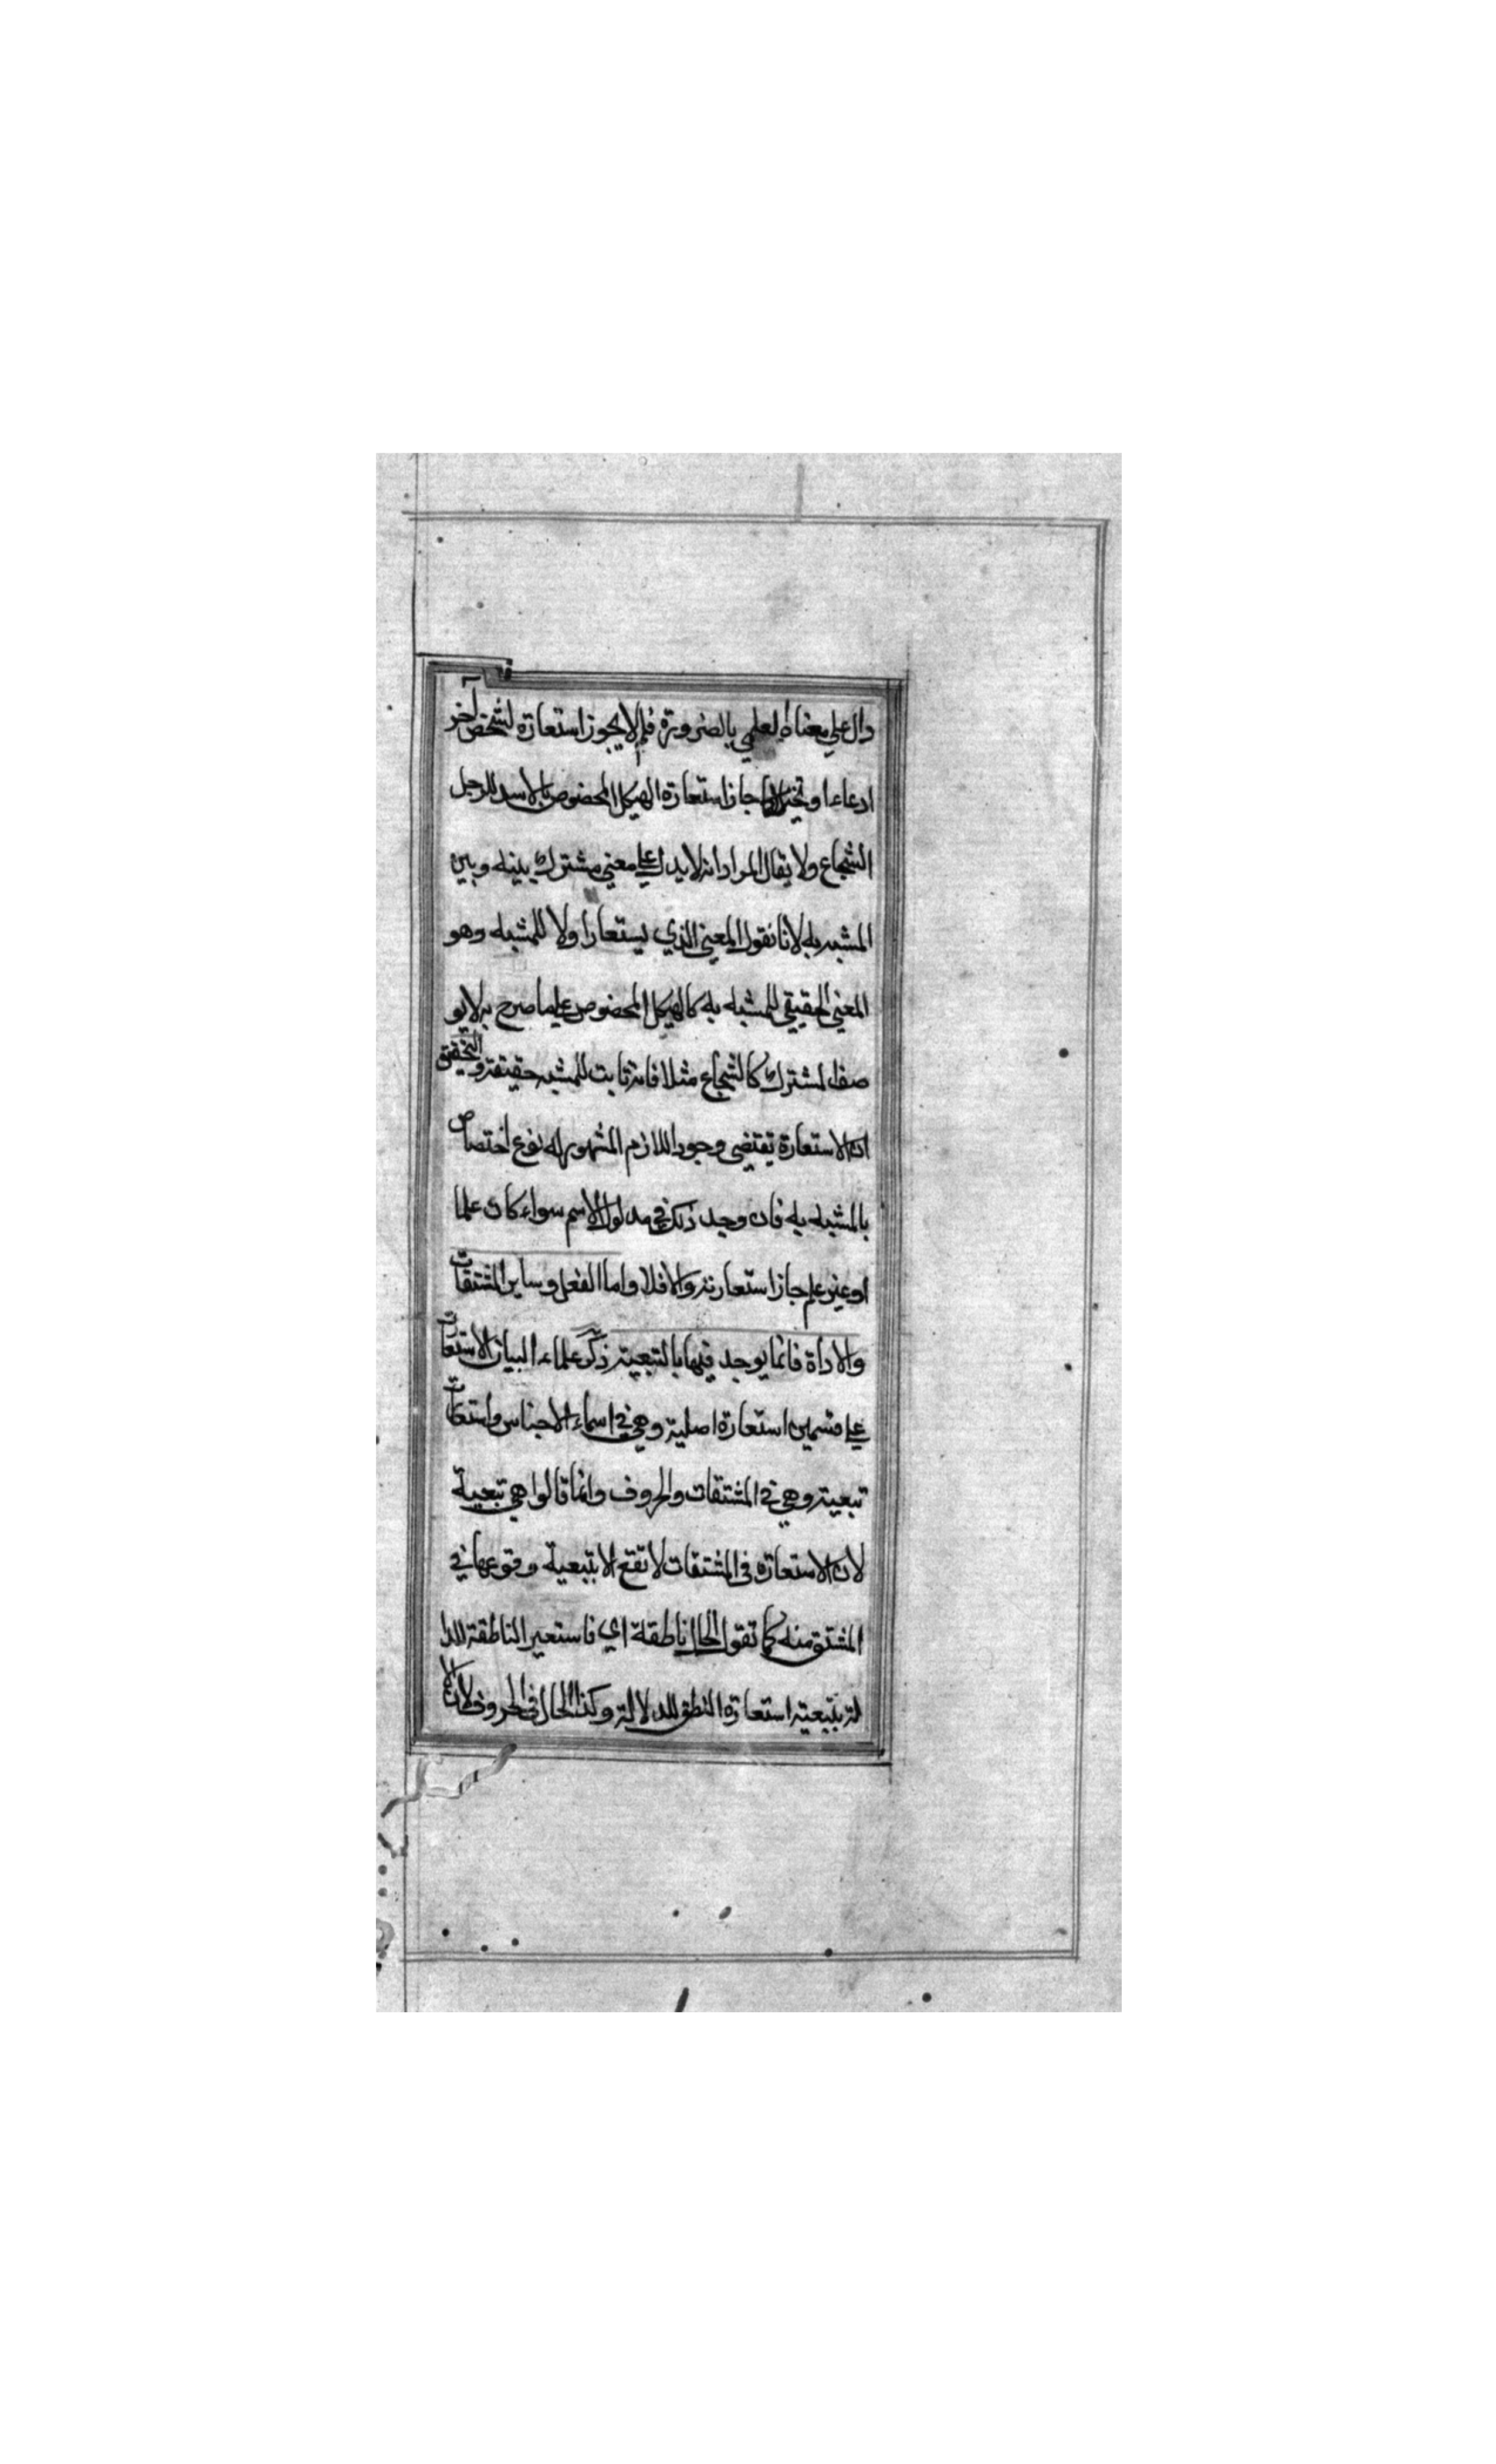 دال على معناه العلمي بالضرورة فلم لا يجوز استعارة لشخص اخر
ادعاء او تخييلا جاز استعارة الهيكل المخصوص بالاسد للرجل
الشجاع ولا يقال المراد انه لا يدل على معنى مشترك بينه وبين
المشبه به لانا نقول المعنى الذي يستعار اولا للمشبه وهو
المعنى الحقيقي للمشبه به كالهيكل المخصوص على ما صرح به لا يو
صف المشترك كالشجاع مثلا فانه ثابت للمشبه حقيقة والتحقيق
ان الاستعارة تقتضى وجود اللازم المشهور له نوع اختصاص
بالمشبه به فان وجد ذلك في مدلول الاسم سواء كان علما
او غير علم جاز استعارته والا فلا واما الفعل وساير المشتقات
والاداة فانما يوجد فيها بالتبعية ذكر علماء البيان الاستعارت
على قسمين استعارة اصلية وهي في اسماء الاجناس واستعارت
تبعية وهي في المشتقات والحروف وانما قالوا هي تبعية
لان الاستعارة في المشتقات لا تقع الا بتبعية وقوعها في
المشتق منه كما تقول الحال ناطقة اي فاستعير الناطقة للدا
لة بتبعية استعارة النطق للدلالة وكذا الحال في الحروف لان